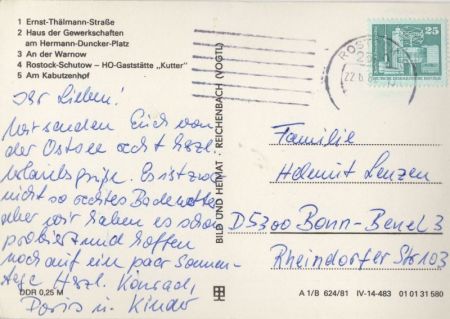 1 Ernst-Thälmann-Straße
2 Haus der Gewerkschaften
am Hermann-Duncker-Platz
3 An der Warnow
4 Rostock-Schutow – HO-Gaststätte „Kutter"
5 Am Kabutzenhof
Ihr Lieben!
Wir senden Euch von
der Ostsee recht herzl.
Urlaubsgrüße. Es ist zwar
nicht so rechtes Badewetter
aber wir haben es schon
probiert und hoffen
noch auf ein paar Sonnen-
tage Herzl. Konrad,
Doris u. Kinder
DDR 0,25 M
BILD UND HEIMAT · REICHENBACH (VOGTL)
25
Familie
Helmut Lenzen
D5300 Bonn-Beuel 3
Rheindorfer Str 103
A 1/B 624/81 IV-14-483 01 01 31 580